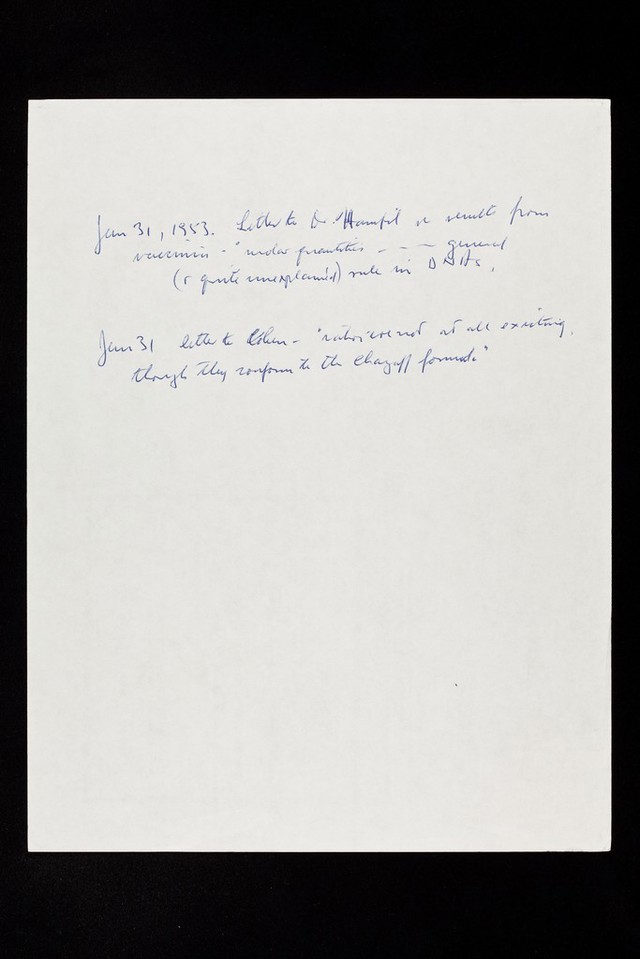 Jan 31, 1953. Letter to Dr. Hampil re results from
vaccinia - " molar quantities - - - general
(& quite unexplained) rule in DNAs.
Jan 31 letter to Cohen - "ratios are not at all exciting,
though they conform to the Chargaff formula"